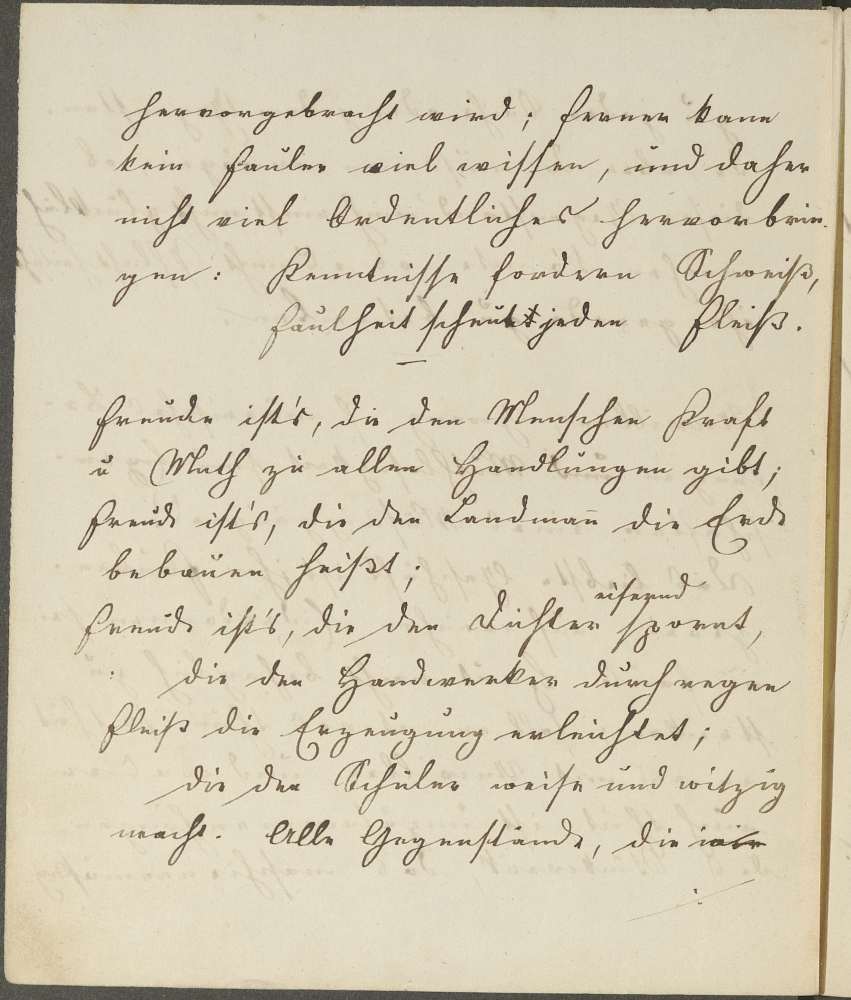 hervorgebracht wird; ferner kann
kein Fauler viel wissen, und daher
nicht viel Ordentliches hervorbrin-
gen: Kenntnisse fordern Schweiß,
Faulheit scheut jeden Fleiß.
Freude ist's, die den Menschen Kraft
u Muth zu allen Handlungen gibt;
Freude ist's, die den Landmañ die Erde
bebauen heißt;
eifernd
Freude ist's, die den Dichter spornt,
die den Handwerker durch regen
Fleiß die Erzeugung erleichtet;
die den Schüler weise und witzig
macht. Alle Gegenstände, die wir